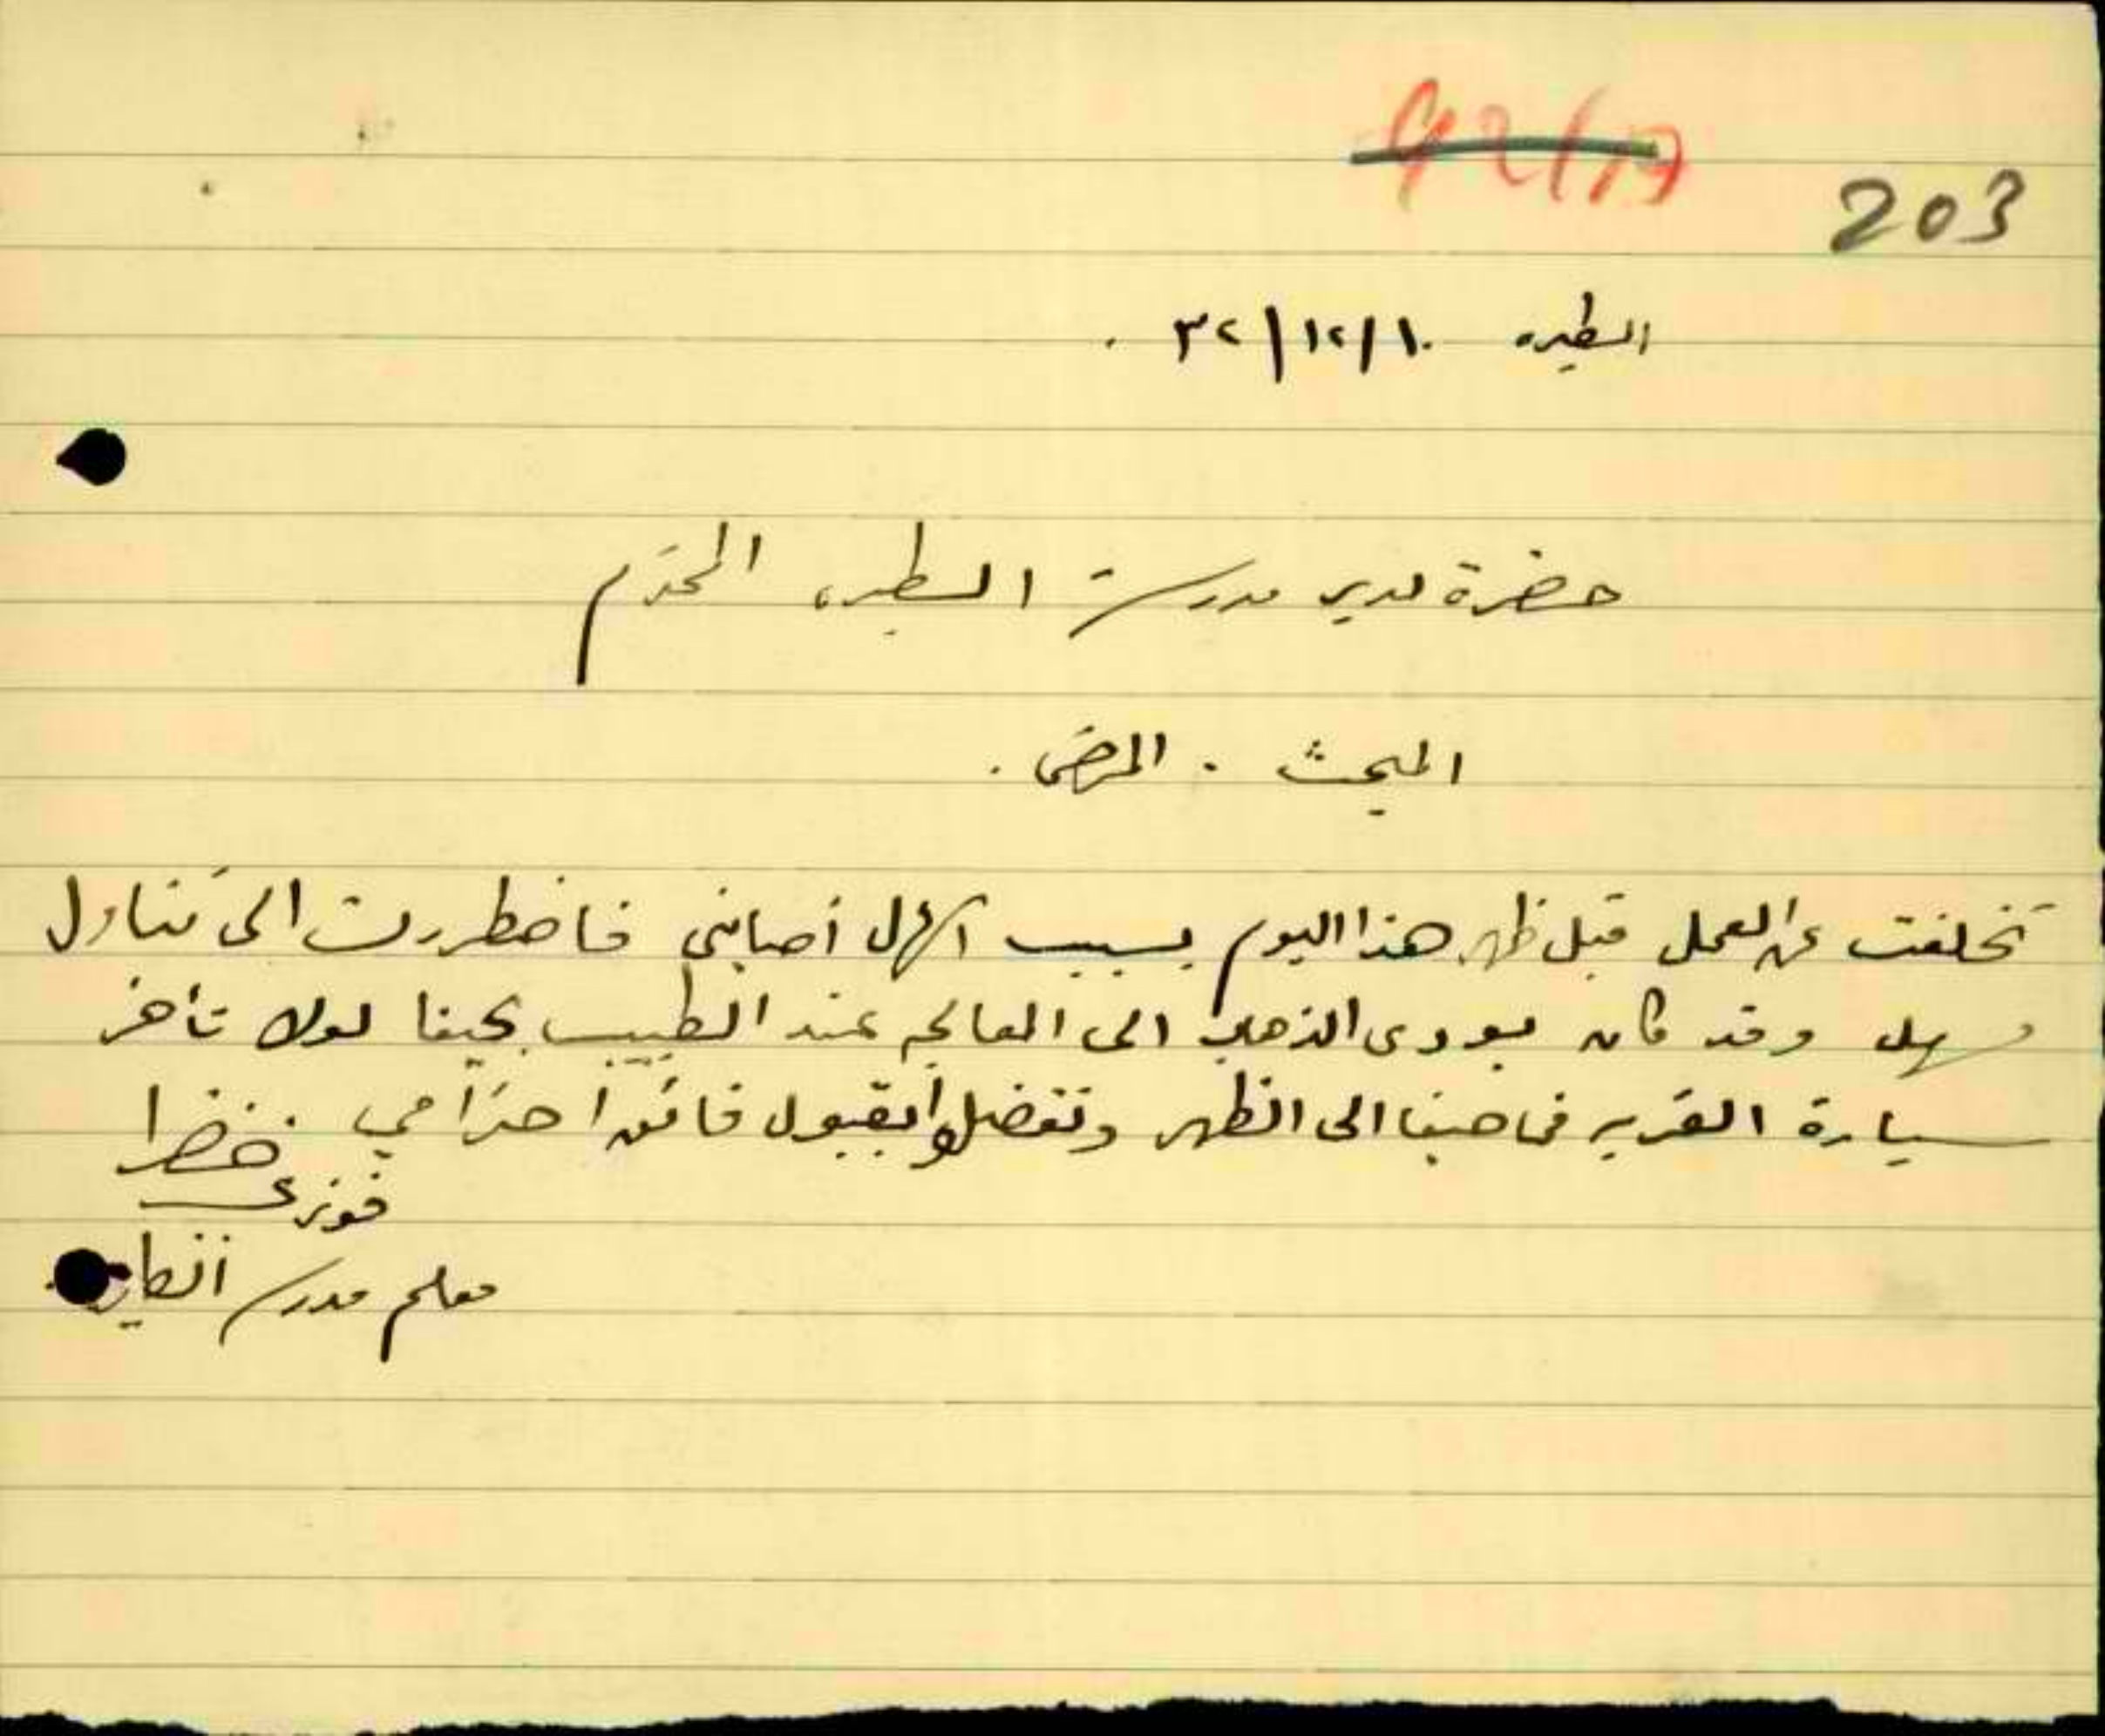 203
الطيره ١٠/١٢/٣٢ .
حضرة مدير مدرسة الطيره المحترم
المبحث . المرض .
تخلفت عن العمل قبل ظهر هذا اليوم بسبب اسهال أصابني فاضطررت الى تناول
مسهل وقد كان بودى الذهاب الى المعالجه عند الطبيب بحيفا لولا تأخر
سيارة القريه في حيفا الى الظهر وتفضلوا بقبول فائق احترامي
فوزى خضرا
معلم مدرسة الطيره